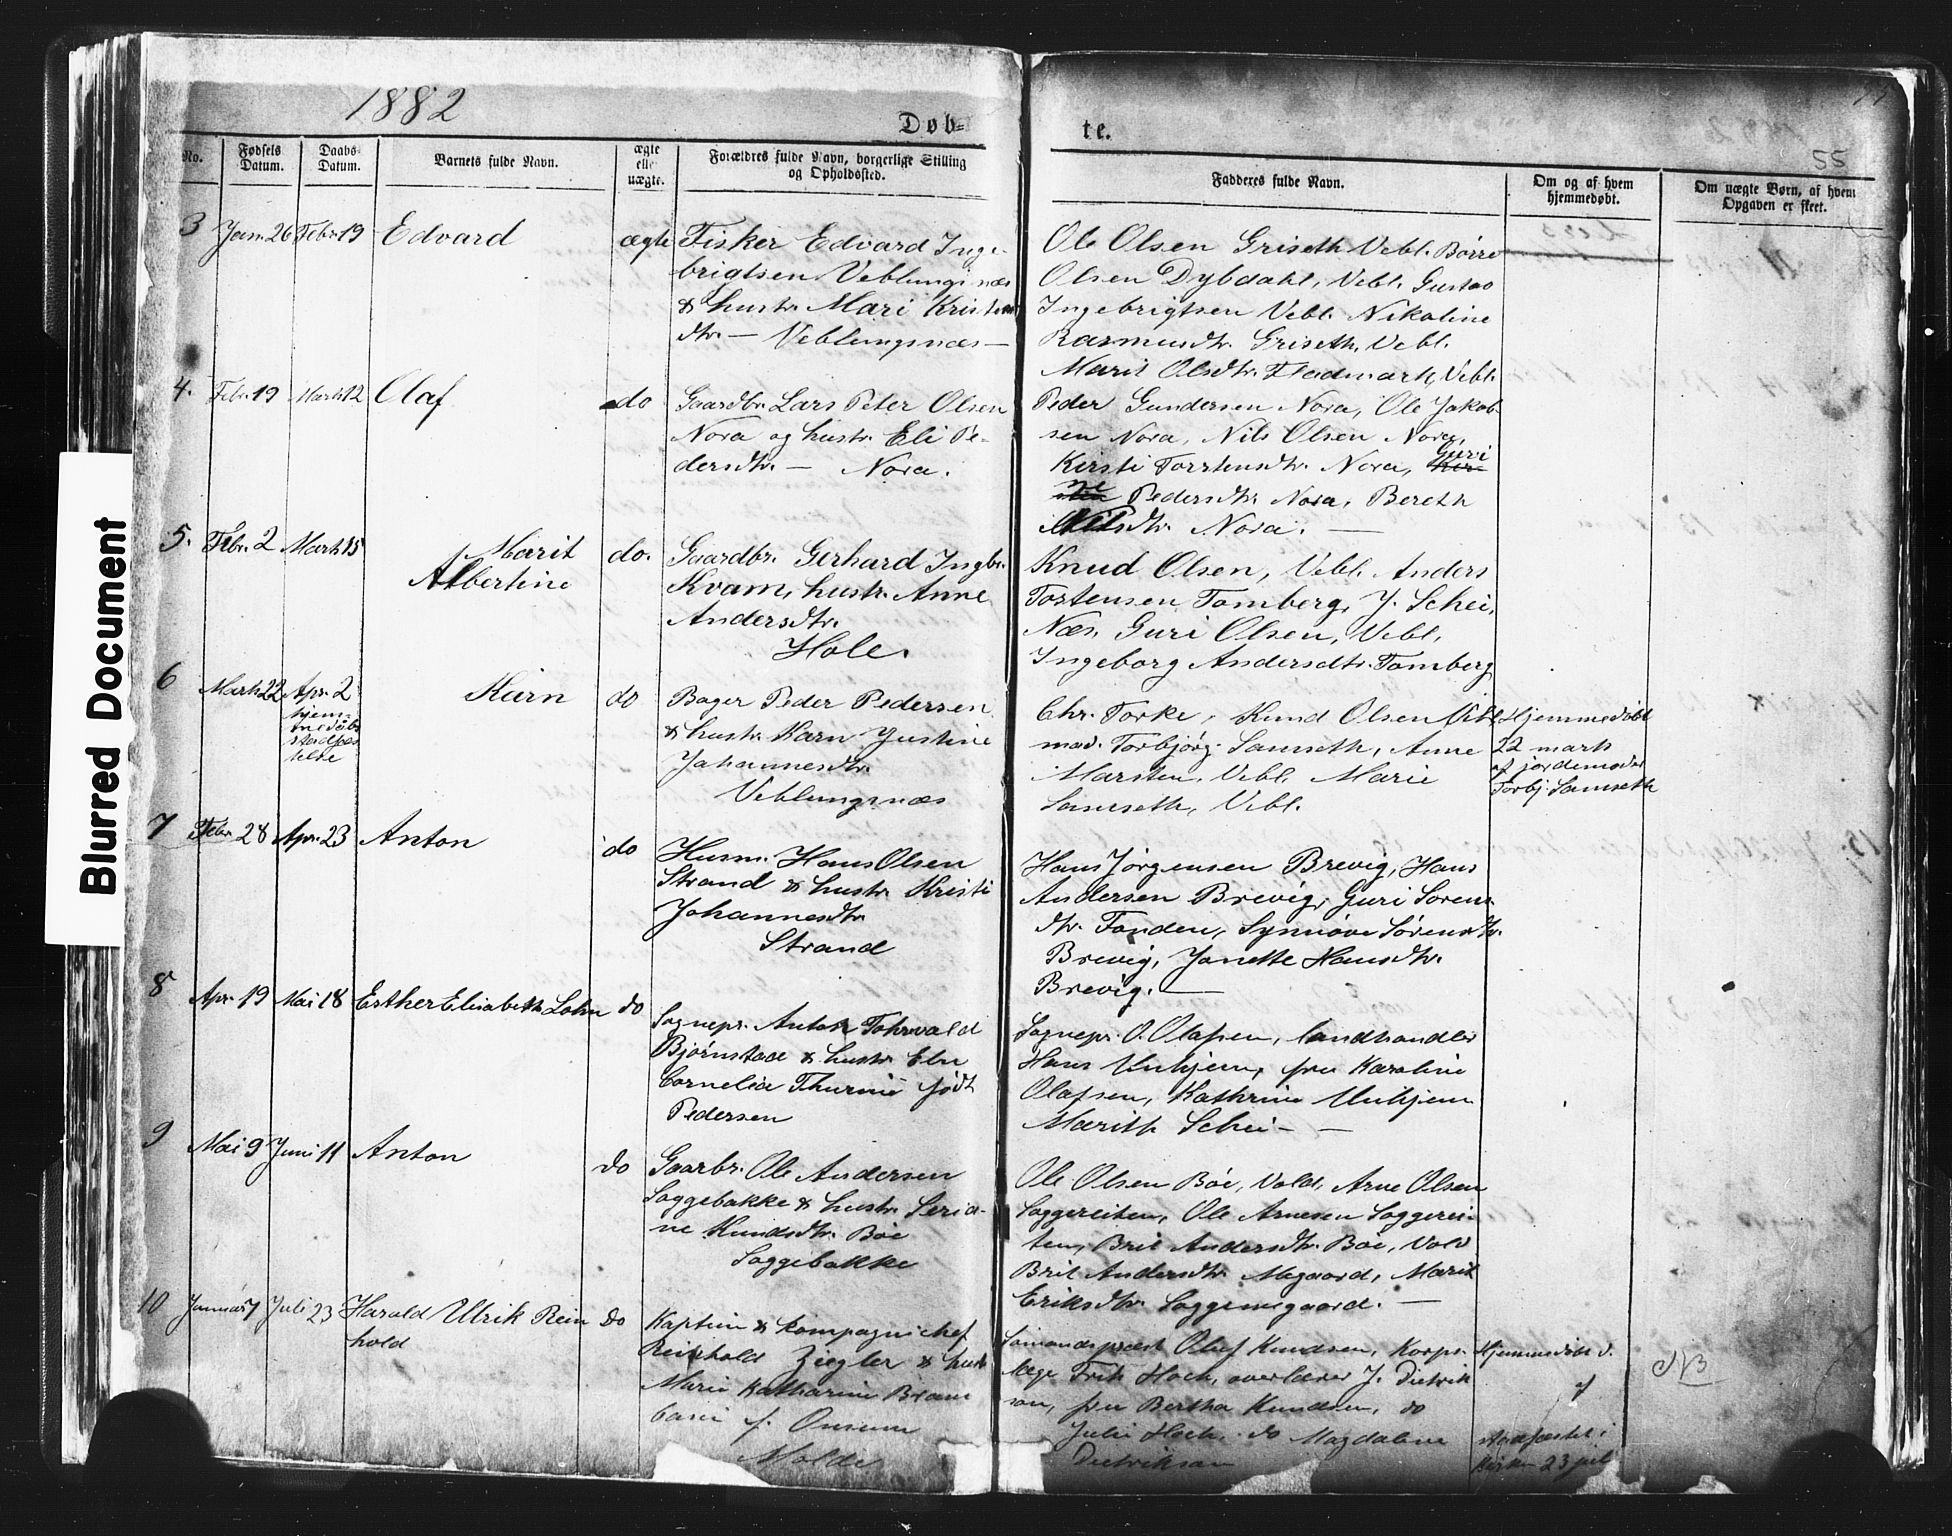 1882
Døb=
te.
55
No.
Fødsels Datum.
Daabs-Datum.
Barnets fulde Navn.
ægte eller uægte.
Forældres fulde Navn, borgerlige Stilling og Opholdssted.
Fadderes fulde Navn.
Om og af hvem hjemmedøbt.
Om uægte Børn, af hvem Opgaven er skeet.
Blurred Document
3 Jan. 26 Febr 19 Edvard ægte
Fisker Edvard Inge-
brigtsen Veblungsnæs
& hustr. Mari Kristens
dtr. — Veblungsnæs —
Ole Olsen Griseth Vebl. Børre
Olsen Dybdahl, Vebl. Gustav
Ingebrigtsen Vebl. Nikoline
Rasmusdtr. Griseth, Vebl.
Marit Olsdtr. Fladmark, Vebl.
4. Febr. 19 Marts 12 Olaf do
Gaardbr. Lars Peter Olsen
Nora og hustr. Eli Pe-
dersdtr. — Nora.
Peder Gundersen Nora, Ole Jakob-
sen Nora, Nils Olsen Nora,
Kirsti Torstensdtr. Nora, Guri
Pedersdtr. Nora, Bereth
Nilsdtr. Nora. —
5. Febr. 2 Marts 15 Marit
Albertine do.
Gaardbr. Gerhard Ingbr.
Kvam, hustr. Anne
Andersdtr.
Hole.
Knud Olsen, Vebl. Anders
Tostensen Tomberg, J. Schei,
Næs. Guri Olsen, Vebl.
Ingeborg Andersdtr. Tomberg
6 Marts 22 Apr. 2 Karn do
hjem-
medøbt
stadfæs
telse
Bager Peder Pedersen
& hustr. Karn Justine
Johannesdtr.
Veblungsnæs
Chr. Torke, Knud Olsen Vebl
mad. Torbjørg Samseth, Anne
Marsten, Vebl. Marie
Samseth, Vebl.
Hjemmedøbt
22 marts
af jordemoder
Torbj. Samseth
7 Febr. 28 Apr. 23 Anton do
Husm. Hans Olsen
Strand & hustr. Kristi
Johannesdtr.
Strand
Hans Jørgensen Brevig, Hans
Andersen Brevig, Guri Sørens-
dtr. Tonden, Synnøve Sørensdtr.
Brevig, Janette Hansdtr.
Brevig. —
8 Apr. 19 Mai 18 Esther Elisabeth Lohn do
Sognepr. Anton Tohrvald
Bjørnstad & hustr. Elen
Cornelia Thurine født
Pedersen
Sognepr. O. Olafsen, landhandler
Hans Unhjem, fru Karoline
Olafsen, Kathrine Unhjem
Marith Schei — —
9 Mai 9 Juni 11 Anton do
Gaarbr. Ole Andersen
Soggebakke & hustr. Seria-
ne Knudsdtr. Bøe
Soggebakke
Ole Olsen Bøe, Vold, Arne Olsen
Soggereiten, Ole Arnesen Soggerei-
ten, Brit Andersdtr. Bøe, Vold
Brit Andersdtr. Megaard, Marit
Eriksdtr. Soggemegaard. —
10 Januar 7 Juli 23 Harald Ulrik Rein
hold do
Kaptein & kompagnichef
Reinhold Ziegler & hustr
Marie Katharine Bram
f. Onsum
Molde
Sømandspræst Oluf Knudsen, Korps-
læge Frits Hoch, overlærer J. Dietrik
son, fru Bertha Knudsen, do
Julie Hoch, do Magdalene
Dietrikson
Hjemmedøbt d.
af
stadfæstet i
kirken 23 juli
NB